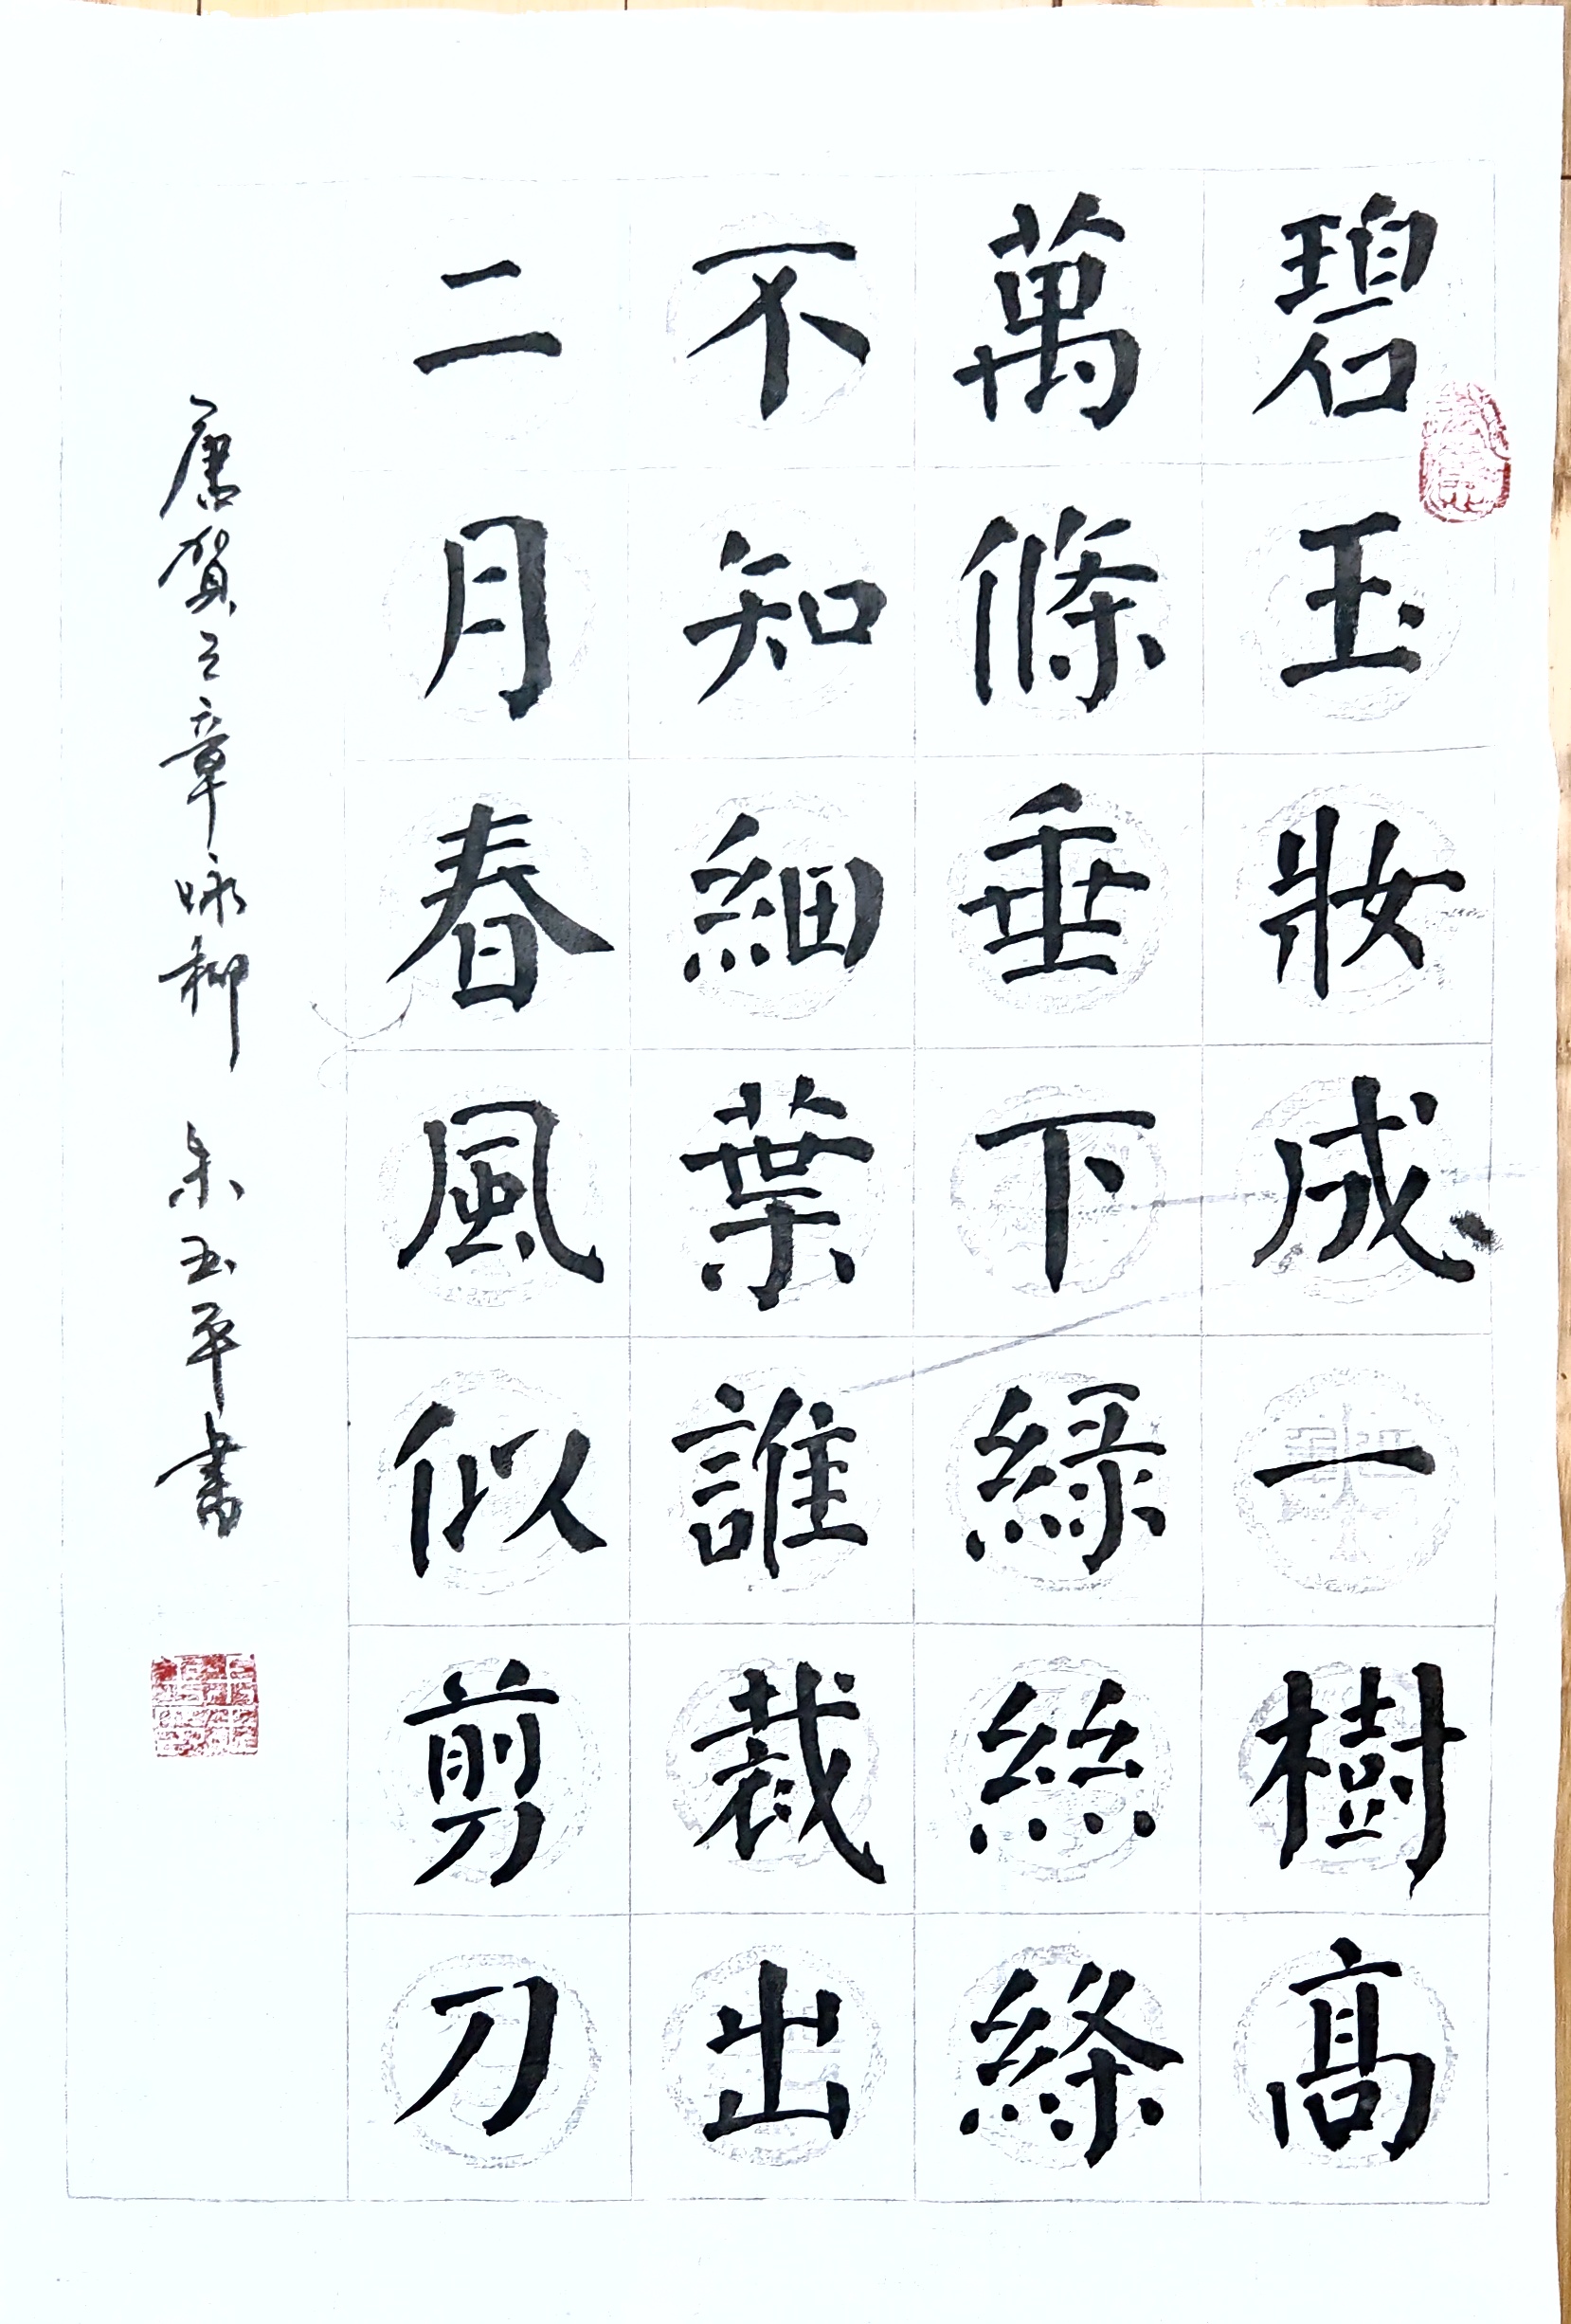 碧玉妝成一樹高
萬條垂下綠絲絛
不知細葉誰裁出
二月春風似剪刀
唐賀之章咏柳 朱玉平書